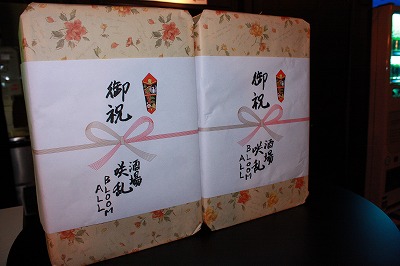 御祝
酒場
咲乱
BLOOM
ALL
御祝
酒場
咲乱
BLOOM
ALL